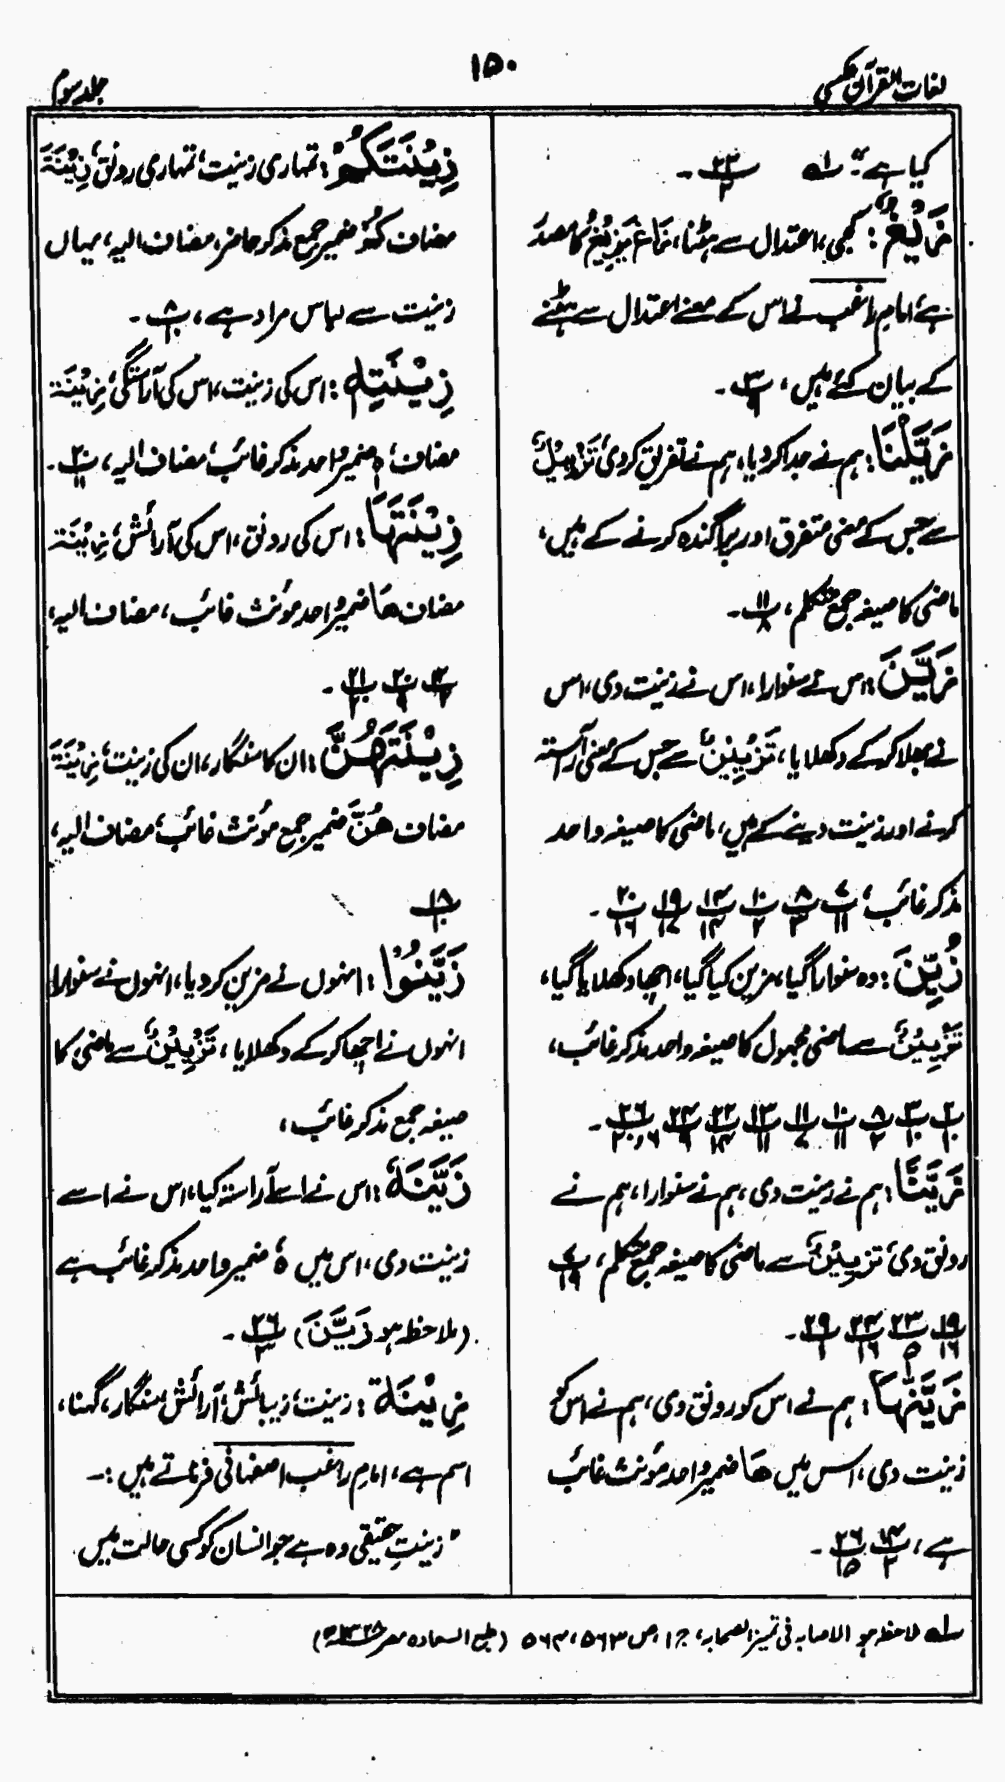 لغات القرآن عکسی
۱۵۰
جلد سوم
کیا ہے" ۔ لہ پ ۲۲/۲ ۔
زَیْغٌ : کجی، اعتدال سے ہٹنا، زَاغَ یَزِیْغُ کا مصدر
ہے، امام راغب نے اس کے معنے اعتدال سے ہٹنے
کے بیان کئے ہیں، پ ۳/۹ ۔
زَیَّلْنَا : ہم نے جدا کر دیا، ہم نے تفریق کر دی، تَزْیِیْلٌ
سے جس کے معنی متفرق اور پراگندہ کرنے کے ہیں،
ماضی کا صیغہ جمع متکلم، پ ۱۱/۸ ۔
زَیَّنَ : اس نے سنوارا، اس نے زینت دی، اس
نے بھلا کر کے دکھلایا، تَزْیِیْنٌ سے جس کے معنی آراستہ
کرنے اور زینت دینے کے ہیں، ماضی کا صیغہ واحد
مذکر غائب، پ ۷/۱۱ پ ۸/۳ پ ۱۰/۲ پ ۱۴/۱۴ پ ۱۹/۱۷ پ ۲۰/۱۶ ۔
زُیِّنَ : وہ سنوارا گیا، مزین کیا گیا، اچھا دکھلایا گیا،
تَزْیِیْنٌ سے ماضی مجہول کا صیغہ واحد مذکر غائب،
پ ۲/۱۰ پ ۳/۱۰ پ ۸/۲ پ ۱۰/۱۱ پ ۱۱/۷ پ ۱۳/۱۱ پ ۲۲/۱۴ پ ۲۴/۹ پ ۲۶/۶،۱۰ ۔
زَیَّنَّا : ہم نے زینت دی، ہم نے سنوارا، ہم نے
رونق دی، تَزْیِیْنٌ سے ماضی کا صیغہ جمع متکلم، پ ۷/۱۹
پ ۱۹/۱۶ پ ۲۳/۵ پ ۲۴/۱۶ پ ۲۹/۱ ۔
زَیَّنّٰهَا : ہم نے اس کو رونق دی، ہم نے اس کو
زینت دی، اس میں ھَا ضمیر واحد مؤنث غائب
ہے، پ ۱۴/۲ پ ۲۶/۱۵ ۔
زِیْنَتَكُمْ : تمہاری زینت، تمہاری رونق، زِیْنَۃَ
مضاف كُمْ ضمیر جمع مذکر حاضر، مضاف الیہ، یہاں
زینت سے لباس مراد ہے، پ ۸/۱۰ ۔
زِیْنَتِهٖ : اس کی زینت، اس کی آراستگی، زِیْنَۃ
مضاف، ہ ضمیر واحد مذکر غائب، مضاف الیہ، پ ۲۰/۱۱ ۔
زِیْنَتَهَا : اس کی رونق، اس کی آرائش، زِیْنَۃ
مضاف ھَا ضمیر واحد مؤنث غائب، مضاف الیہ،
پ ۱۲/۲ پ ۲۰/۹ پ ۲۱/۲۰ ۔
زِیْنَتَهُنَّ : ان کا سنگار، ان کی زینت، زِیْنَۃَ
مضاف ھُنَّ ضمیر جمع مؤنث غائب، مضاف الیہ،
پ ۱۸/۱۰
زَیَّنُوْا : انہوں نے مزین کر دیا، انہوں نے سنوارا
انہوں نے اچھا کر کے دکھلایا، تَزْیِیْنٌ سے ماضی کا
صیغہ جمع مذکر غائب،
زَیَّنَهٗ : اس نے اسے آراستہ کیا، اس نے اسے
زینت دی، اس میں ہٗ ضمیر واحد مذکر غائب ہے
(ملاحظہ ہو زَیَّنَ) پ ۲۶/۱۳ ۔
زِیْنَة : زینت، زیبائش، آرائش، سنگار، گہنا،
اسم ہے، امام راغب اصفہانی فرماتے ہیں :۔
" زینتِ حقیقی وہ ہے جو انسان کو کسی حالت میں
لہ ملاحظہ ہو الاصابہ فی تمییز الصحابہ، ج ۱، ص ۵۶۳، ۵۶۴ (طبع السعادہ مصر ۱۳۲۸ھ)